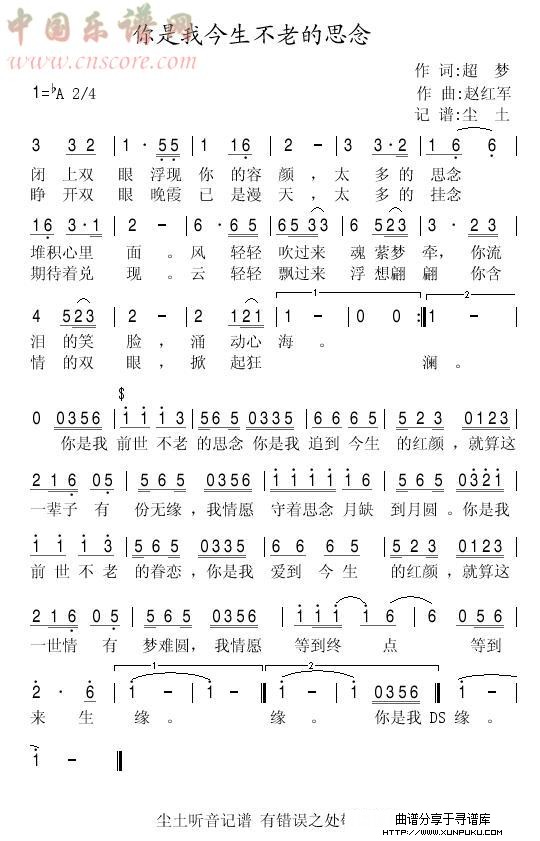 中国乐谱网
www.cnscore.com
你是我今生不老的思念
作 词:超 梦
1=♭A 2/4
作 曲:赵红军
记 谱:尘 土
3 3 2 | 1 · 5 5 | 1 1 6 | 2 - | 3 3 · 2 | 1 6 6 |
闭 上双 眼 浮现 你 的容 颜 ，太 多的 思念
睁 开双 眼 晚霞 已 是漫 天 ，太 多的 挂念
1 6 3 · 1 | 2 - | 6 · 6 5 | 6 5 3 3 | 6 5 2 3 | 3 · 2 3 |
堆积心里 面 。风 轻轻 吹过来 魂 萦梦 牵，你流
期待着兑 现 。云 轻轻 飘过来 浮 想翩 翩 你含
1 2
4 5 2 3 | 2 - | 2 1 2 1 | 1 - | 0 0 :‖ 1 - |
泪 的笑 脸 ，涌 动心 海 。
情 的双 眼 ，掀 起狂 澜 。
$
0 0 3 5 6 | 1 1 1 3 | 5 6 5 0 3 5 6 | 6 6 6 5 | 5 2 3 0 1 2 3 |
你是我 前世 不老 的思念 你是我 追到 今生 的红颜 ，就算这
2 1 6 0 5 | 5 6 5 0 3 5 6 | 1 1 1 1 1 6 | 5 6 5 0 3 2 1 |
一辈子 有 份无缘 ，我情愿 守着思念 月缺 到月圆 。你是我
1 1 1 3 | 5 6 5 0 3 5 6 | 6 6 6 5 | 5 2 3 0 1 2 3 |
前 世 不 老 的眷恋 ，你是我 爱到 今 生 的红颜 ，就算这
2 1 6 0 5 | 5 6 5 0 3 5 6 | 1 1 1 1 6 | 6 5 6 |
一世情 有 梦难圆 ，我情愿 等到终 点 等到
1 2
2 · 6 | 1 - | 1 - ‖ 1 - | 1 - | 1 0 3 5 6 ‖ 1 - |
来 生 缘 。 缘 。 你是我 DS 缘 。
1 - ‖
尘土听音记谱 有错误之处
曲谱分享于寻谱库
HTTP://WWW.XUNPUKU.COM